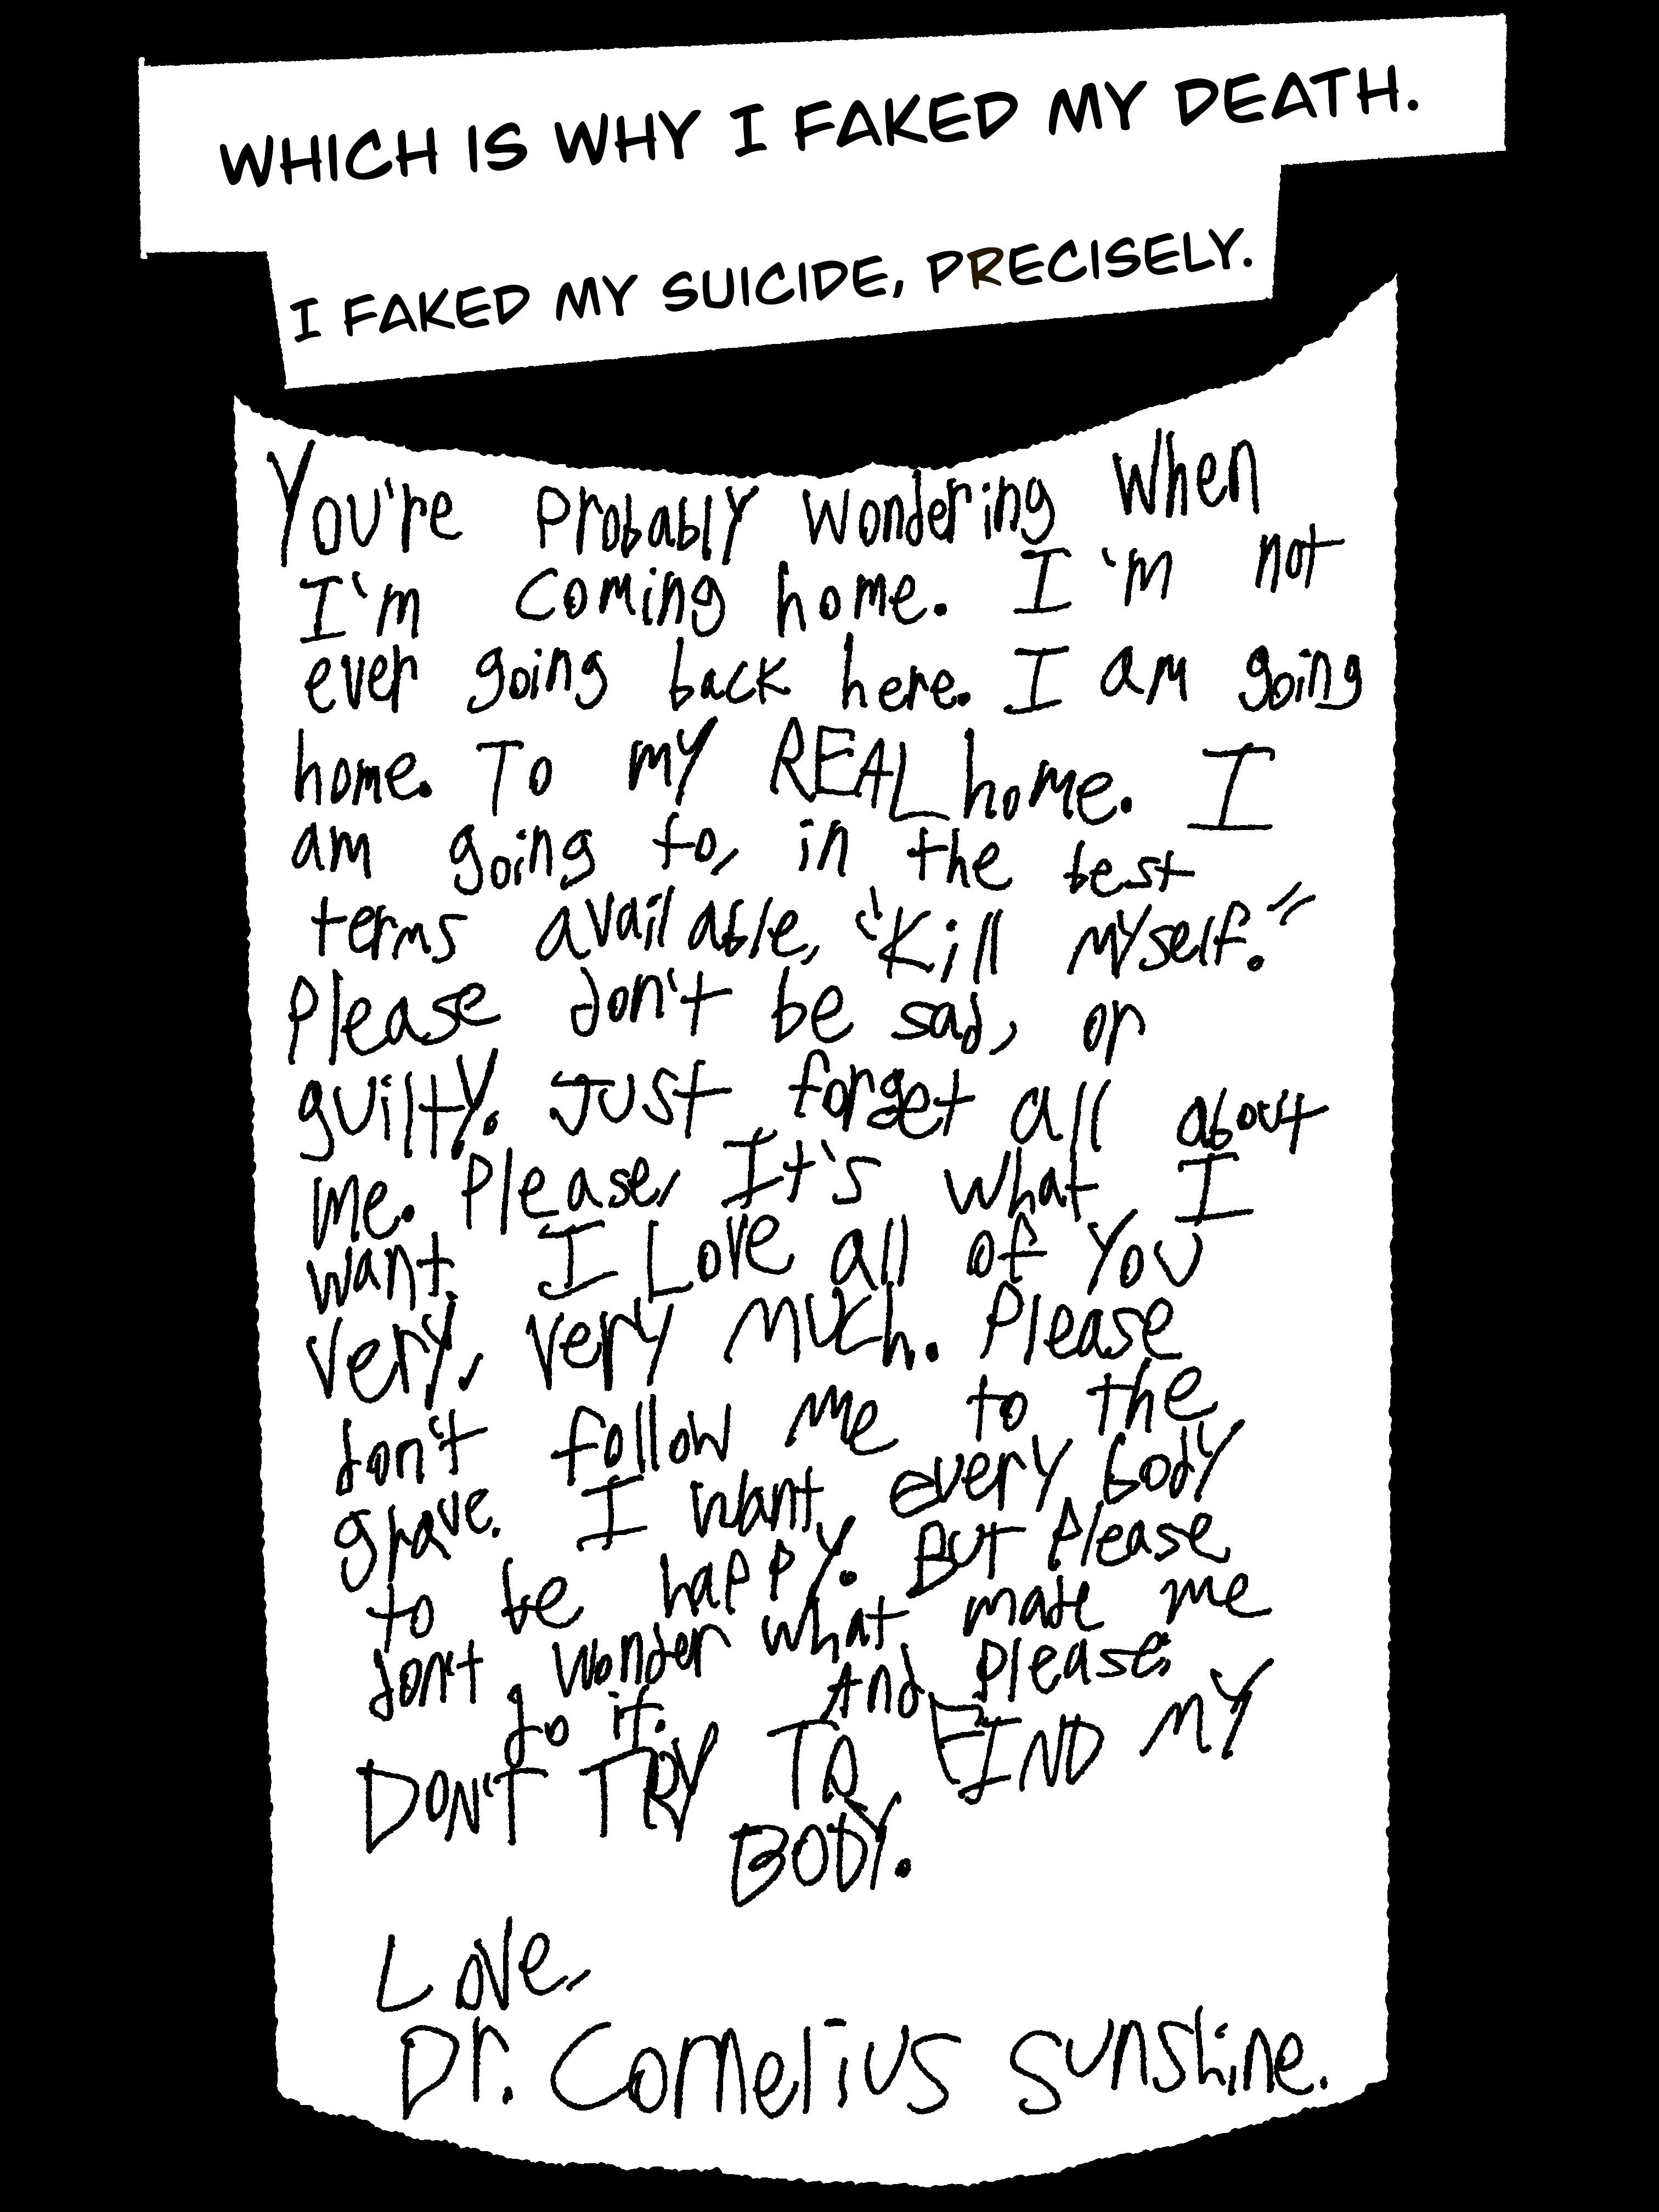 WHICH IS WHY I FAKED MY DEATH.
I FAKED MY SUICIDE, PRECISELY.
You're Probably Wondering When
I'm Coming home. I'm not
ever going back here. I am going
home. To my REAL home. I
am going to, in the best
terms available, "Kill myself."
Please don't be sad, or
guilty. Just forget all about
me. Please, It's what I
want. I Love all of You
very, very much. Please
don't follow me to the
grave. I want every body
to be happy. But Please
don't wonder what made me
do it. And please,
DON'T TRY TO FIND MY
BODY.
Love,
Dr. Cornelius Sunshine.